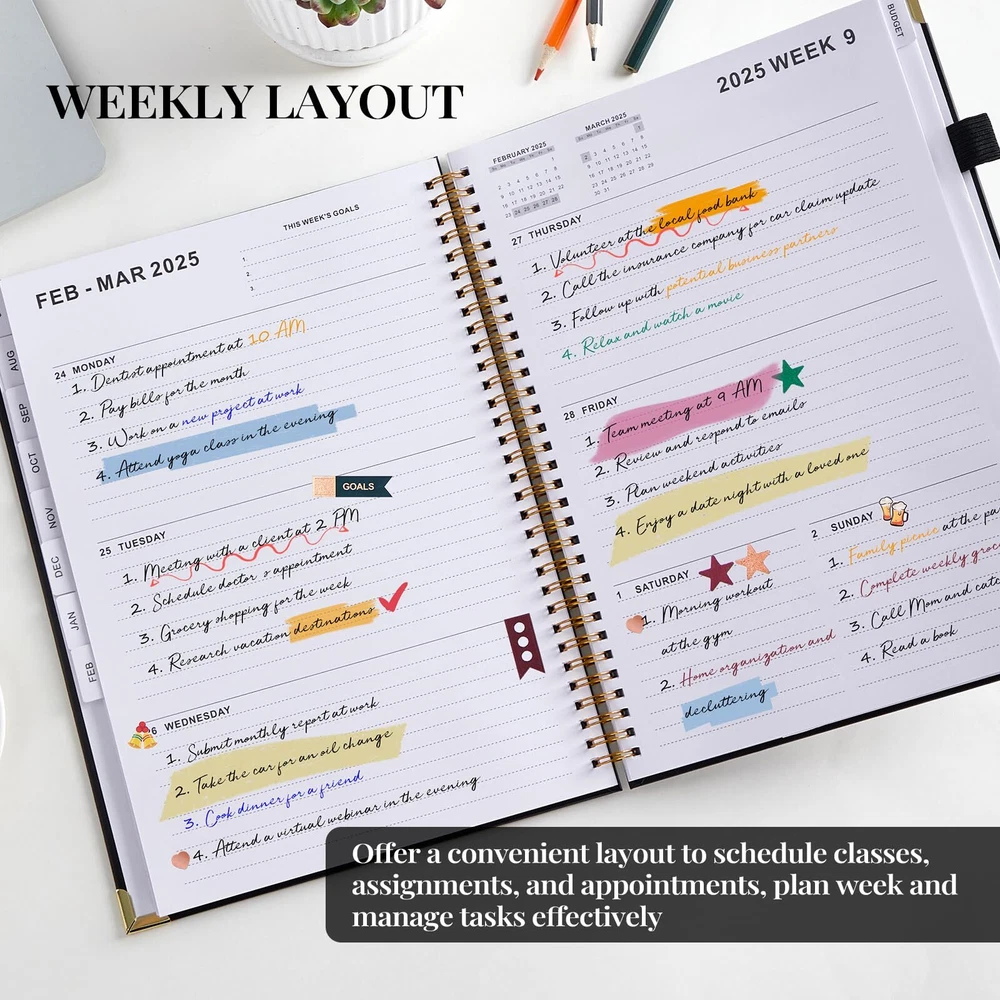 WEEKLY LAYOUT
FEB - MAR 2025
THIS WEEK'S GOALS
1.
2.
3.
24 MONDAY
1. Dentist appointment at 10 AM
2. Pay bills for the month
3. Work on a new project at work
4. Attend yoga class in the evening
GOALS
25 TUESDAY
1. Meeting with a client at 2 PM
2. Schedule doctor s appointment
3. Grocery shopping for the week
4. Research vacation destinations
6 WEDNESDAY
1. Submit monthly report at work
2. Take the car for an oil change
3. Cook dinner for a friend
4. Attend a virtual webinar in the evening
AUG
SEP
OCT
NOV
DEC
JAN
FEB
2025 WEEK 9
BUDGET
FEBRUARY 2025
MARCH 2025
27 THURSDAY
1. Volunteer at the local food bank
2. Call the insurance company for car claim update
3. Follow up with potential business partners
4. Relax and watch a movie
28 FRIDAY
1. Team meeting at 9 AM
2. Review and respond to emails
3. Plan weekend activities
4. Enjoy a date night with a loved one
1 SATURDAY
1. Morning workout
at the gym
2. Home organization and
decluttering
2 SUNDAY
1. Family picnic at the pa
2. Complete weekly groc
3. Call Mom and catc
4. Read a book
Offer a convenient layout to schedule classes,
assignments, and appointments, plan week and
manage tasks effectively